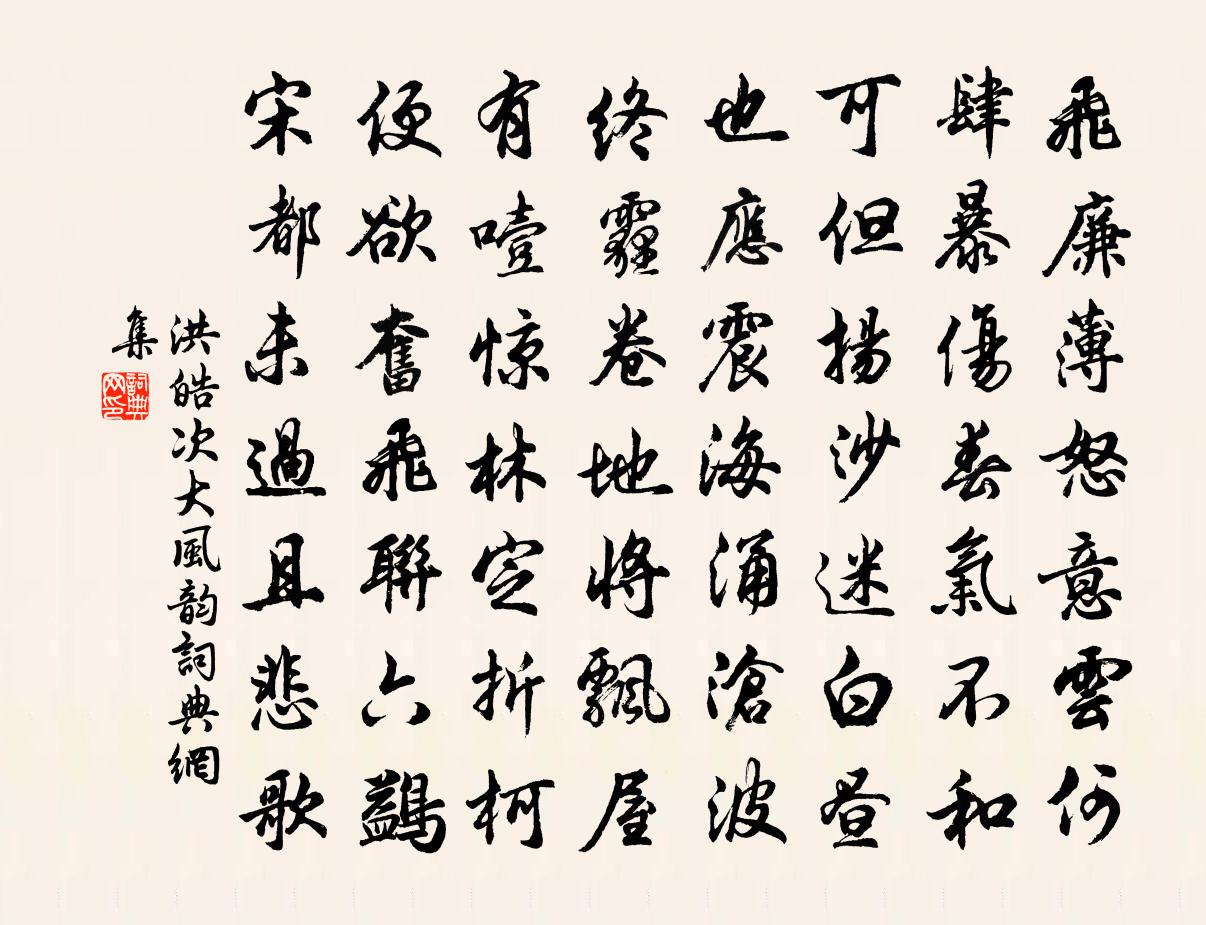 飛廉薄怒意雲何
肆暴傷春氣不和
可但揚沙迷白晝
也應震海涌滄波
終霾卷地將飄屋
有噎惊林定折柯
便欲奮飛聯六鷁
宋都未過且悲歌
洪皓次大風韵詞典網
集
詞典
网印